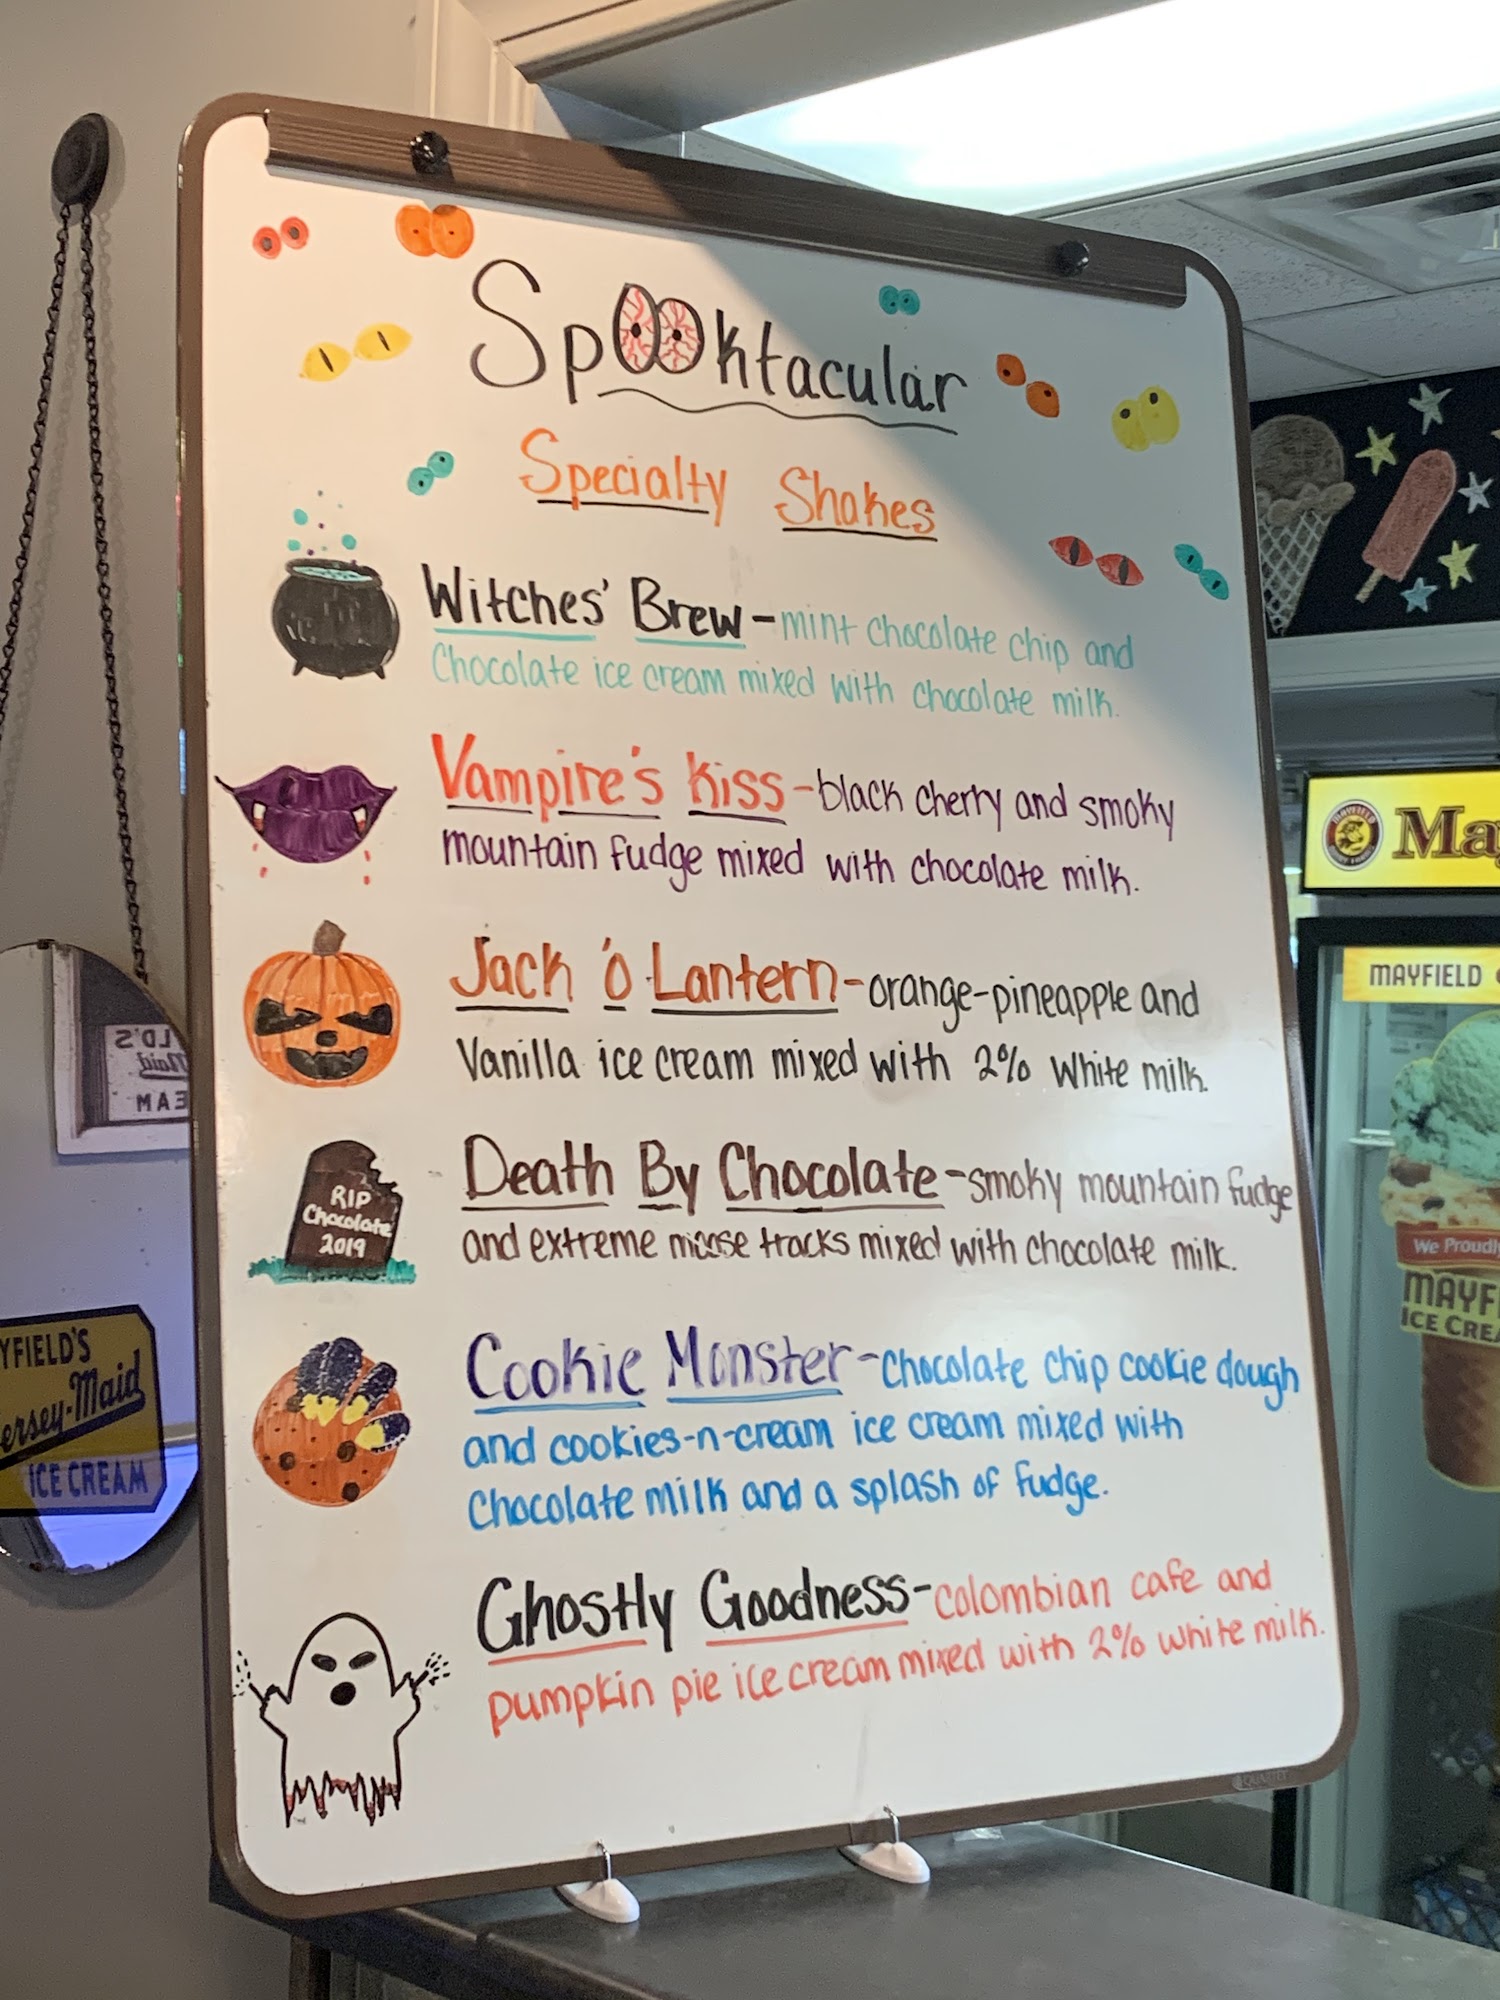 Spooktacular
Specialty Shakes
Witches' Brew - mint chocolate chip and
Chocolate ice cream mixed with chocolate milk.
Vampire's Kiss - black cherry and smoky
mountain fudge mixed with chocolate milk.
Jack 'o Lantern - orange-pineapple and
Vanilla ice cream mixed with 2% White milk.
RIP
Chocolate
2019
Death By Chocolate - smoky mountain fudge
and extreme moose tracks mixed with chocolate milk.
Cookie Monster - Chocolate chip cookie dough
and cookies-n-cream ice cream mixed with
Chocolate milk and a splash of fudge.
Ghostly Goodness - colombian cafe and
pumpkin pie ice cream mixed with 2% white milk.
MAYFIELD
Ma
MAYFIELD
We Proudl
MAYF
ICE CREA
YFIELD'S
ersey-Maid
ICE CREAM